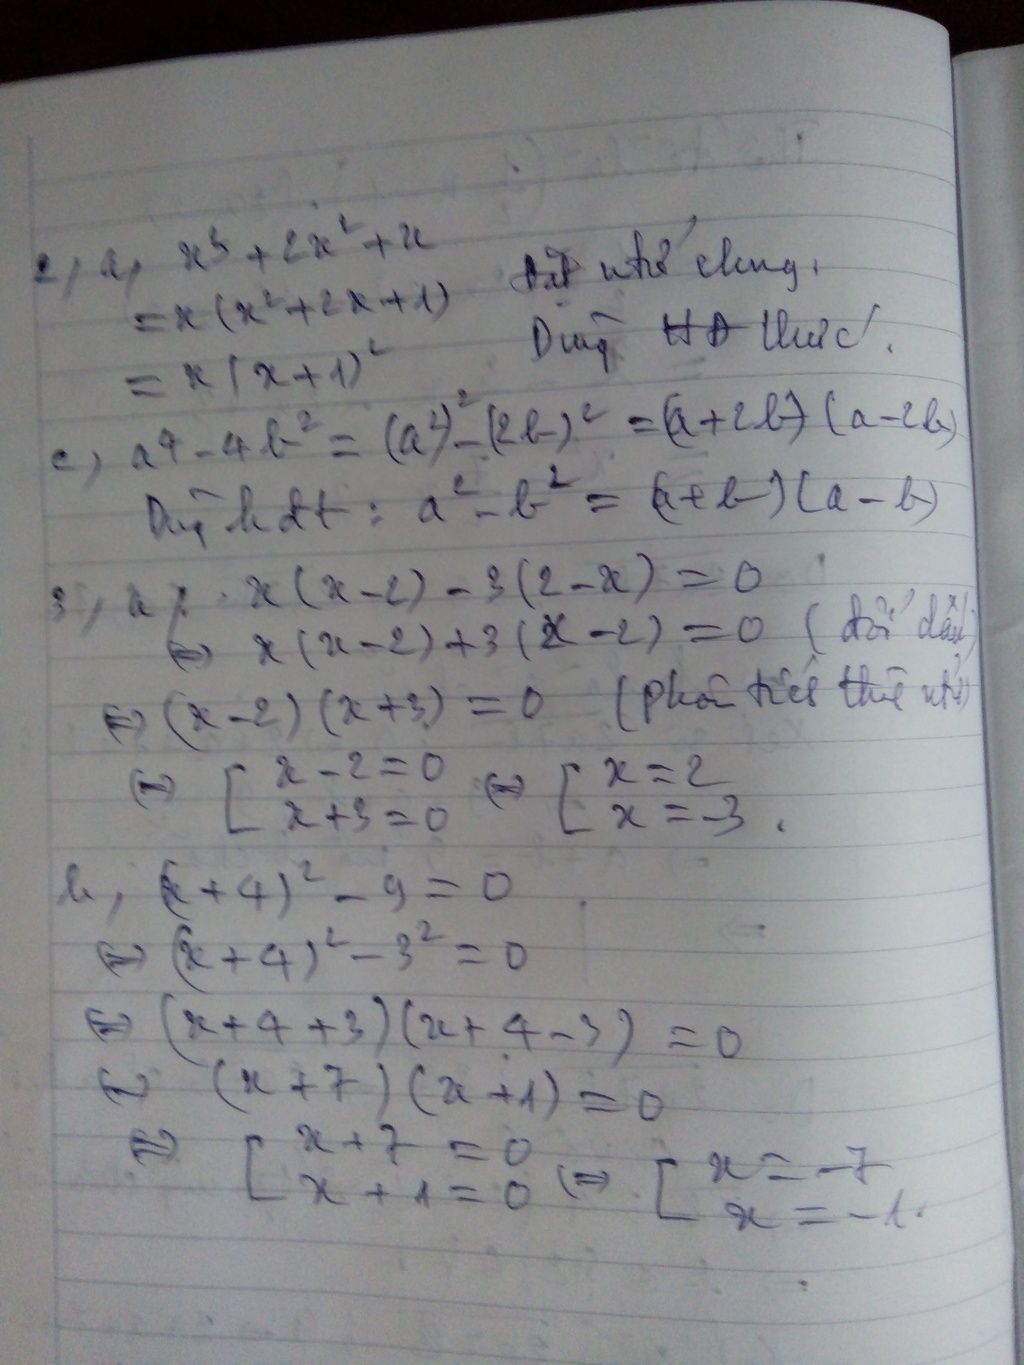 2, a, x³ + 2x² + x
= x (x² + 2x + 1) Đặt nhớ chung.
= x (x + 1)² Dùng HĐ thức.
c, a⁴ - 4b² = (a²)² - (2b)² = (a + 2b) (a - 2b)
Dùng hđt : a² - b² = (a + b) (a - b)
3, a, x (x - 2) - 3 (2 - x) = 0
⇔ x (x - 2) + 3 (x - 2) = 0 ( đổi dấu)
⇔ (x - 2) (x + 3) = 0
⇔ [ x - 2 = 0 ⇔ [ x = 2
x + 3 = 0 x = -3 .
b, (x + 4)² - 9 = 0
⇔ (x + 4)² - 3² = 0
⇔ (x + 4 + 3) (x + 4 - 3) = 0
⇔ (x + 7) (x + 1) = 0
⇔ [ x + 7 = 0 ⇔ [ x = -7
x + 1 = 0 x = -1.